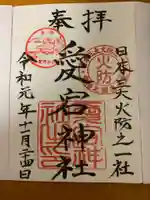 奉拝
日本三大火防之一社
火防
愛宕神社
令和元年十月二十四日